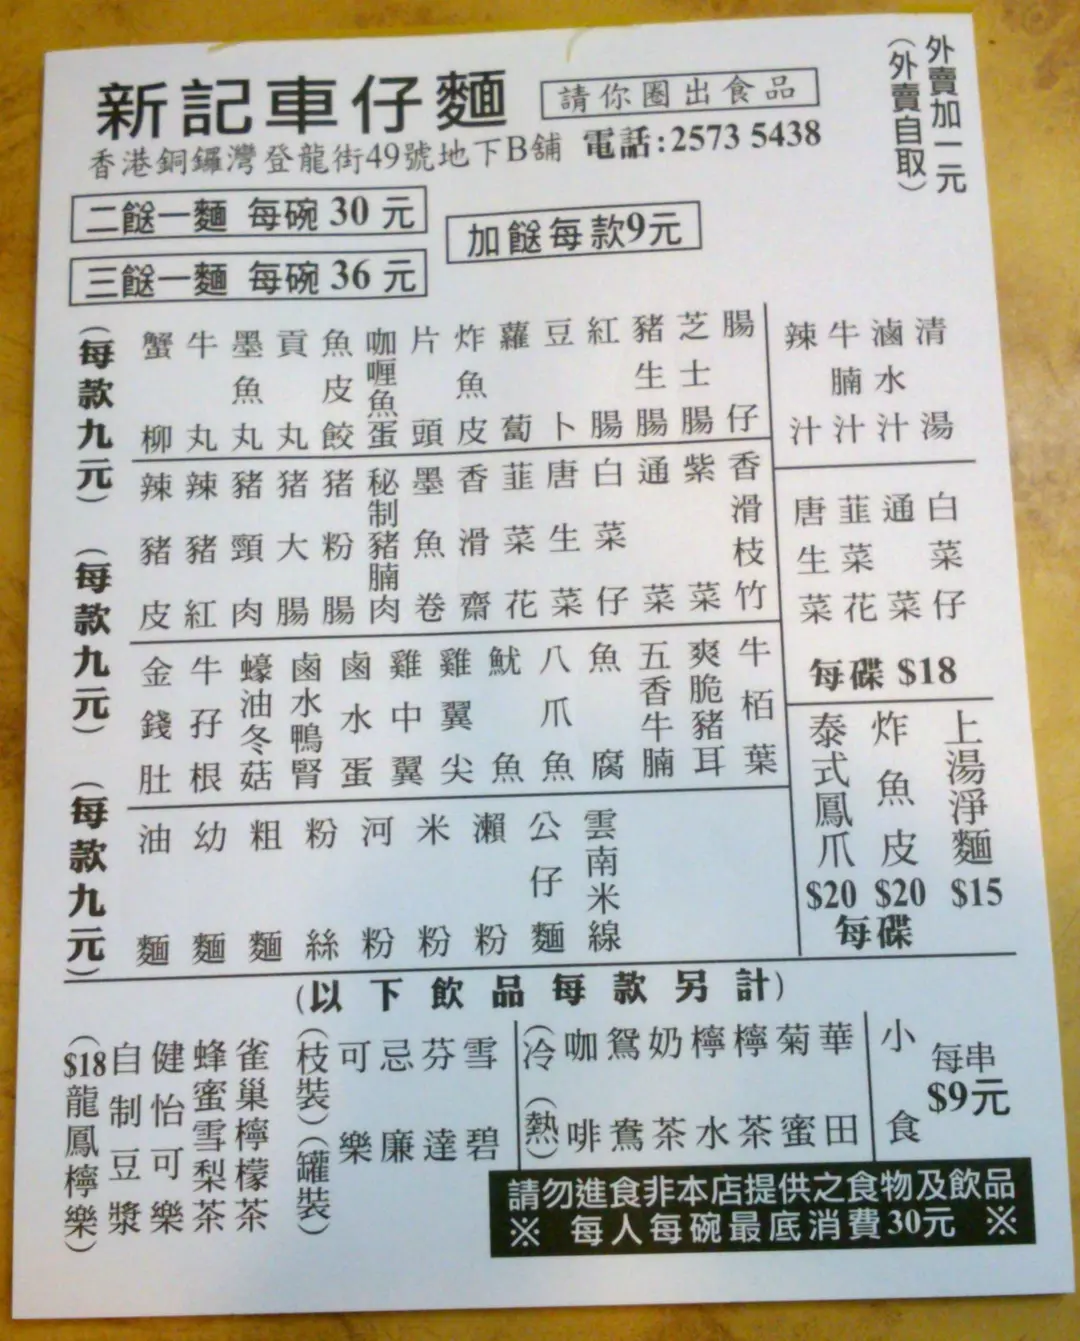 新記車仔麵
請你圈出食品
外賣加一元
(外賣自取)
香港銅鑼灣登龍街49號地下B舖 電話:2573 5438
二餸一麵 每碗 30 元
三餸一麵 每碗 36 元
加餸每款9元
(每款九元)
蟹柳
牛丸
墨魚丸
貢丸
魚皮餃
咖喱魚蛋
片頭
炸魚皮
蘿蔔
豆卜
紅腸
豬生腸
芝士腸
腸仔
辣汁
牛腩汁
滷水汁
清湯
(每款九元)
辣豬皮
辣豬紅
豬頸肉
猪大腸
猪粉腸
秘制豬腩肉
墨魚卷
香滑齋
韮菜花
唐生菜
白菜仔
通菜
紫菜
香滑枝竹
唐生菜
韮菜花
通菜
白菜仔
每碟 $18
金錢肚
牛孖根
蠔油冬菇
鹵水鴨腎
鹵水蛋
雞中翼
雞翼尖
魷魚
八爪魚
魚腐
五香牛腩
爽脆豬耳
牛栢葉
(每款九元)
油麵
幼麵
粗麵
粉絲
河粉
米粉
瀨粉
公仔麵
雲南米線
泰式鳳爪 $20
炸魚皮 $20
每碟
上湯淨麵 $15
(以下飲品每款另計)
($18龍鳳檸樂)
自制豆漿
健怡可樂
蜂蜜雪梨茶
雀巢檸檬茶
(枝裝)(罐裝)
可樂
忌廉
芬達
雪碧
(冷)(熱)
咖啡
鴛鴦
奶茶
檸水
檸茶
菊蜜
華田
小食
每串
$9元
請勿進食非本店提供之食物及飲品
※ 每人每碗最底消費30元 ※